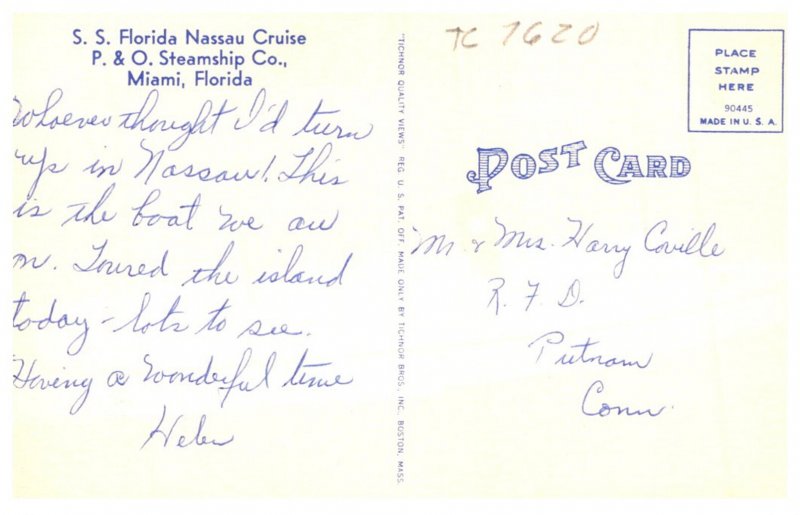 S. S. Florida Nassau Cruise
P. & O. Steamship Co.,
Miami, Florida
Whoever thought I'd turn
up in Nassau! This
is the boat we are
on. Toured the island
today - lots to see.
Having a wonderful time
Helen
"TICHNOR QUALITY VIEWS" REG. U. S. PAT. OFF. MADE ONLY BY TICHNOR BROS., INC. BOSTON, MASS.
TC 7620
PLACE
STAMP
HERE
90445
MADE IN U. S. A.
POST CARD
Mr. & Mrs. Harry Coville
R. F. D.
Putnam
Conn.